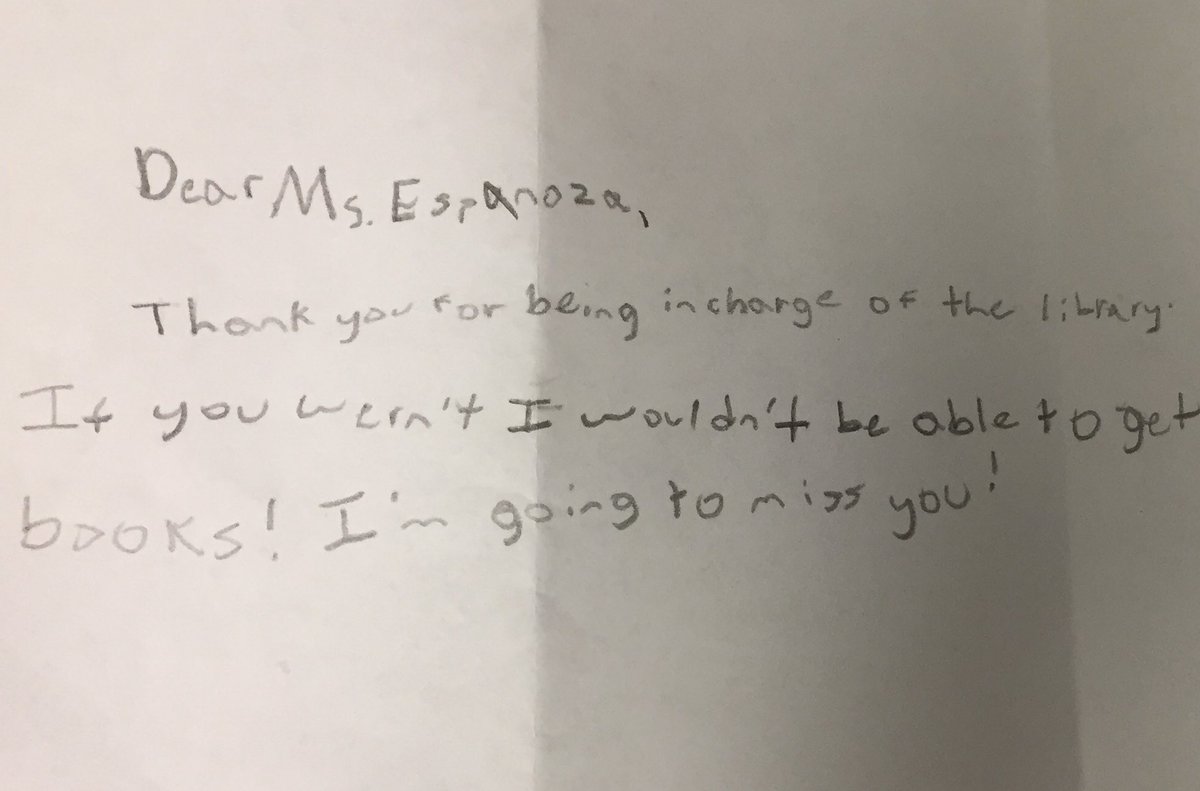 Dear Ms. Espanoza,
Thank you for being incharge of the library.
If you wern't I wouldn't be able to get
books! I'm going to miss you!